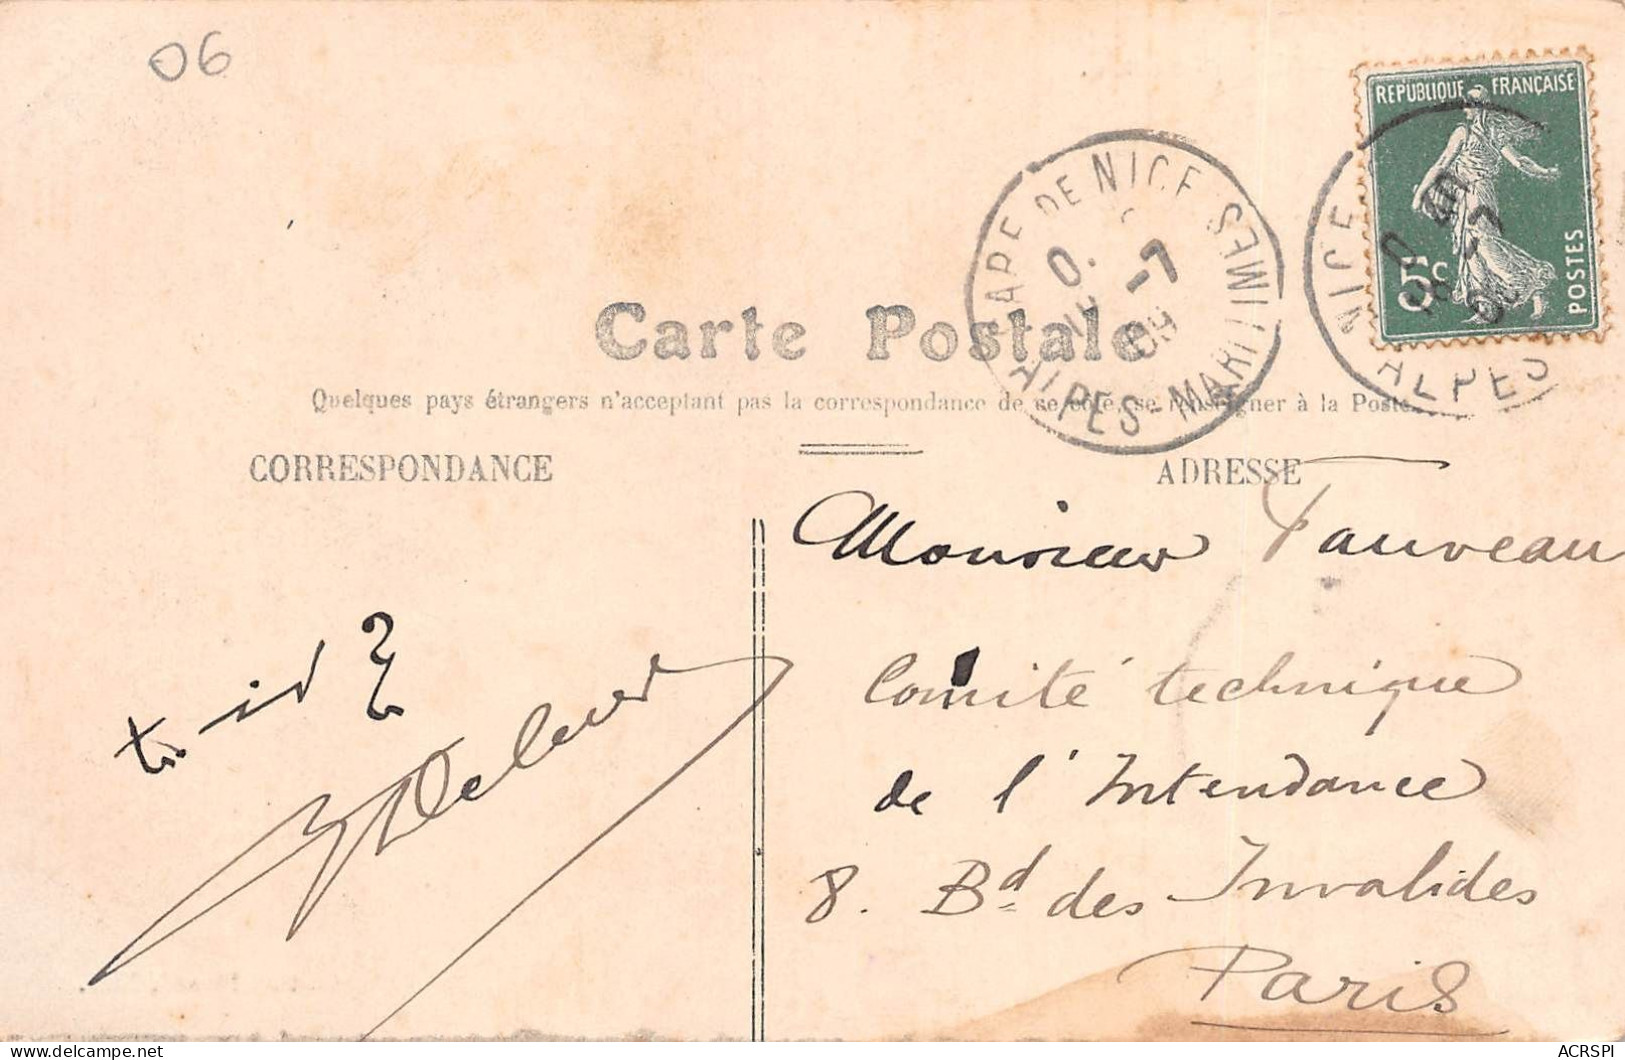 06
RÉPUBLIQUE FRANÇAISE
5c
POSTES
GARE DE NICE
ALPES-MARITIMES
-7
09
NICE
ALPES
Carte Postale
Quelques pays étrangers n'acceptant pas la correspondance de ce côté, se renseigner à la Poste.
CORRESPONDANCE
ADRESSE
Monsieur Fauveau
Comité technique
de l'Intendance
8. Bd des Invalides
Paris
delcampe.net
ACRSPI